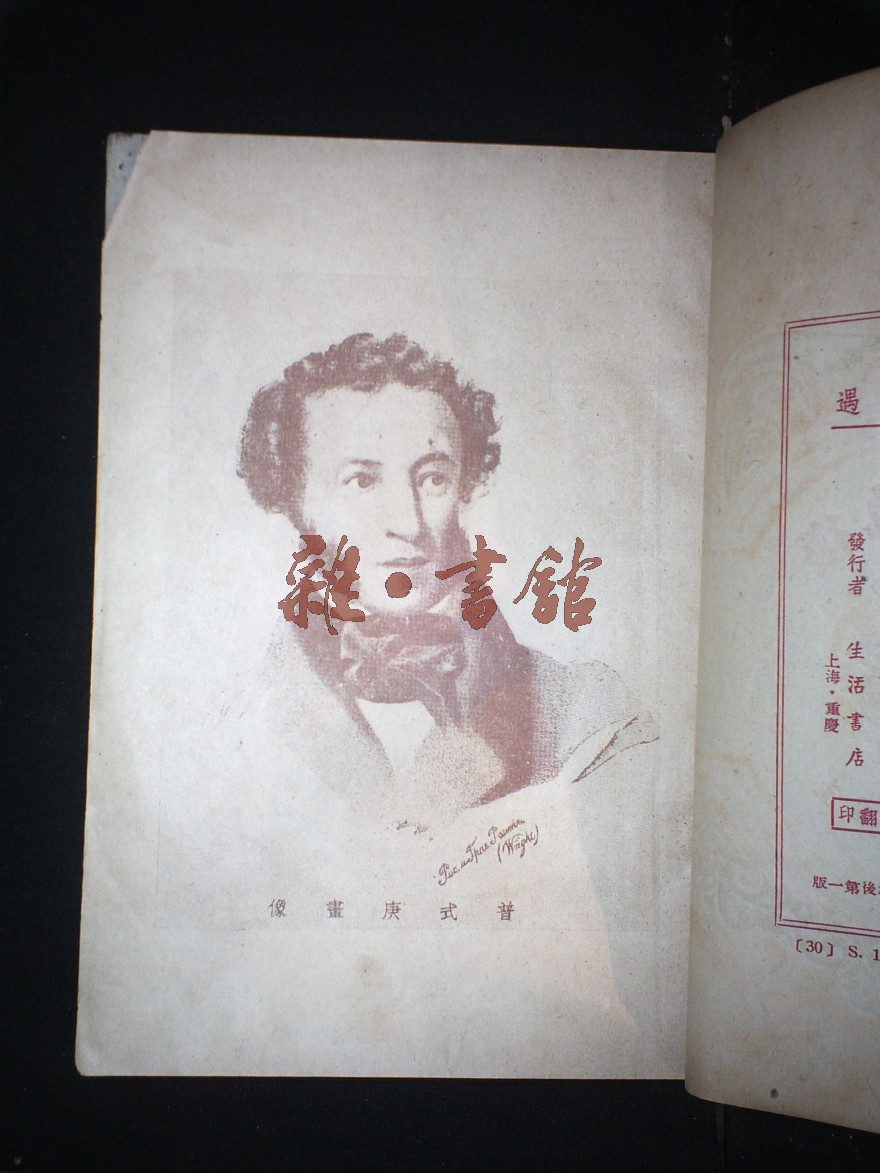 雜·書館
Рис. и Грав. Раитъ
(Wright)
像畫庚式普
遇
發行者
生活書店
上海·重慶
印翻
版一第後
〔30〕 S. 1